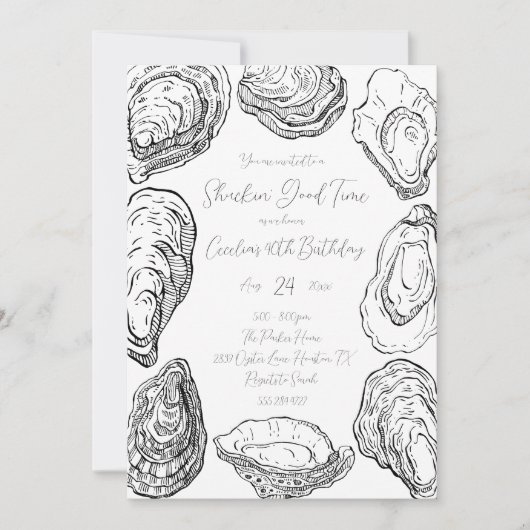 You are invited to a
Shuckin' Good Time
as we honor
Cecelia's 40th Birthday
Aug 24 20xx
5:00 - 8:00pm
The Parker Home
2839 Oyster Lane Houston, TX
Regrets to Sarah
555.284.9727